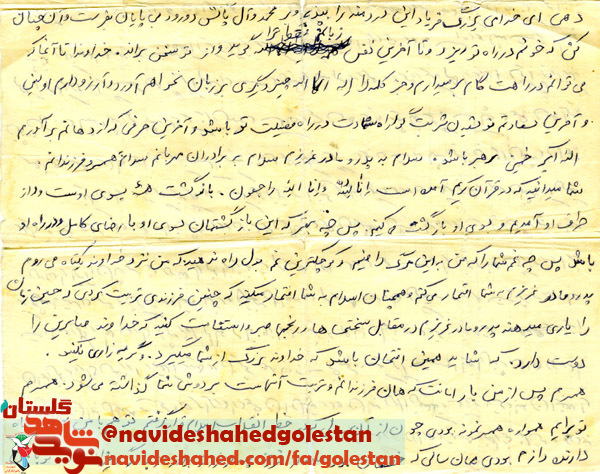 دهی ای خدای بزرگ فریاد این دردمند را
کن که خونم در راه تو بریزد و تا آخرین نفس زبانم فقط ترا گوید و از تو سخن براند. خداوندا تا آنجا که
می توانم در راهت گام بر میدارم و جز کلمه لا اله الا الله چیز دیگری بر زبان نخواهم آورد و آرزو دارم اولین
و آخرین سعادتم نوشیدن شربت گوارای شهادت در راه تو باشد و آخرین حرفی که از دهانم بر آورم
الله اکبر خمینی رهبر باشد. سلام به پدر و مادر عزیزم سلام به برادران مهربانم سلام به همسر و فرزندانم.
شما میدانید که در قرآن کریم آمده است انا لله و انا الیه راجعون. بازگشت همه بسوی اوست و از
طرف او آمدیم و بسوی او بازگشت می کنیم. پس چه بهتر که این بازگشتمان بسوی او با رضای کامل در راه او
باشد پس چه غم شما را که من به این مرگ راضیم و کوچکترین غم بدل راه ندهید که من نزد خداوند می روم
پدر و مادر عزیزم به شما افتخار می کنم و همچنان اسلام به شما افتخار میکند که چنین فرزندی تربیت کردید که دین زمان
را یاری میدهند پدر و مادر عزیزم در مقابل سختی ها و رنجها صبر و استقامت کنید که خداوند صابرین را
دوست دارد. که شاید همین امتحان باشد که خداوند بزرگ از شما میگیرد. و گریه زاری نکنید.
همسرم پس از من بار امانت که همان فرزندانم و تربیت آنهاست بر دوش شما گذاشته می شود. همسرم
تو برایم همواره همسر خوبی بودی چون از
دارنده رازم بودی همان سالی که
گلستان
نوید شاهد
@navideshahedgolestan
navideshahed.com/fa/golestan